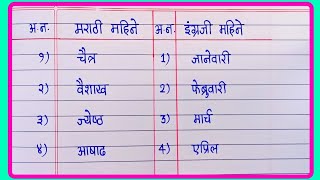 अ.न. मराठी महिने अ.न. इंग्रजी महिने
१) चैत्र 1) जानेवारी
२) वैशाख 2) फेब्रुवारी
३) ज्येष्ठ 3) मार्च
४) आषाढ 4) एप्रिल